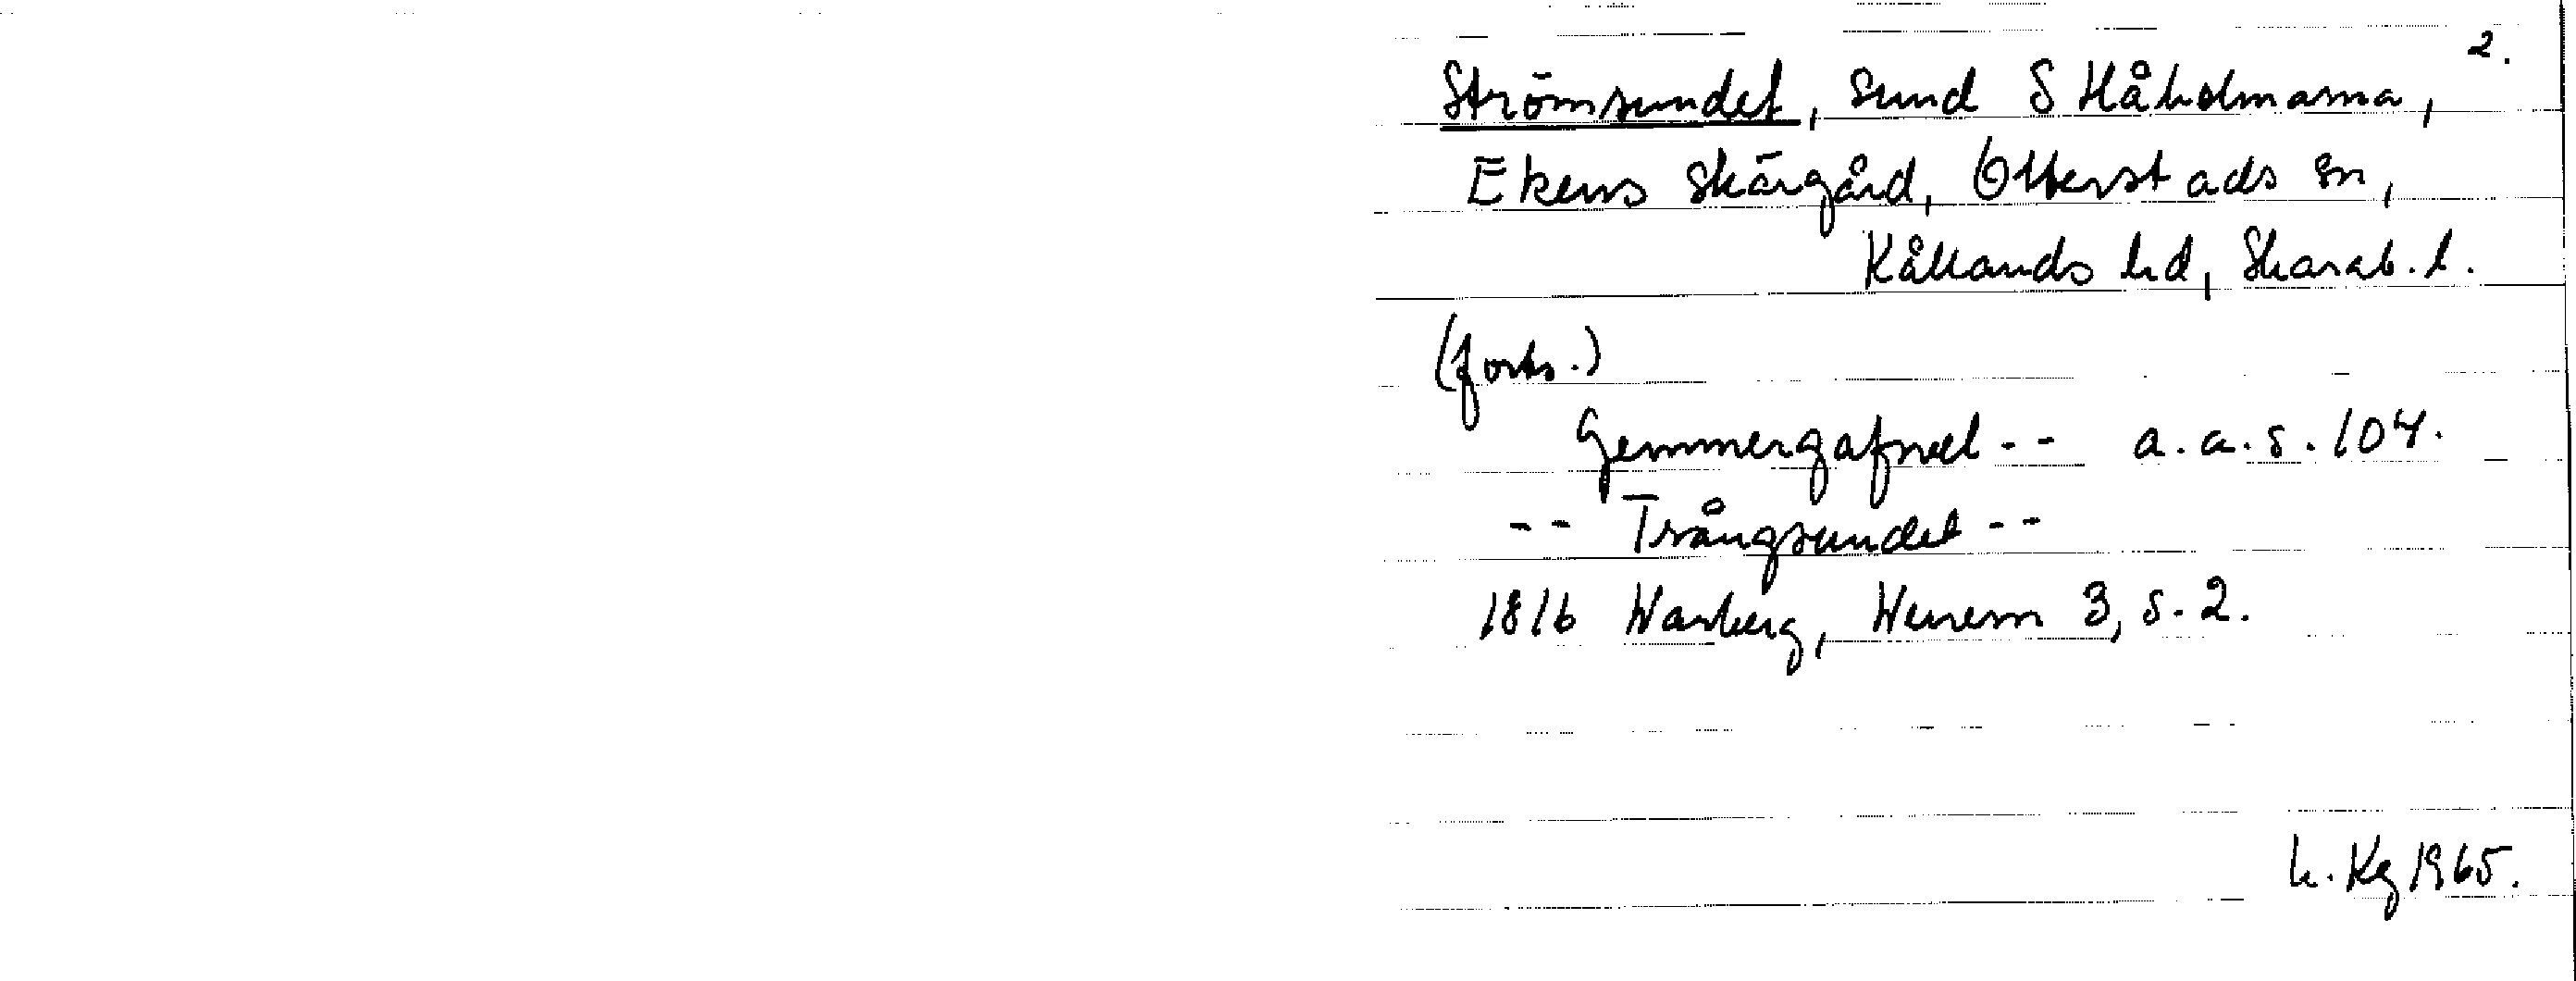 2.
Strömsundet, sund S Håholmarna,
Ekens skärgård, Otterstads sn,
Kållands hd, Skarab. l.
(forts.)
Gemmergafvel -- a.a.s. 104.
-- Trångsundet --
1816 Warberg, Wenern 3, s. 2.
h. Kg 1965.